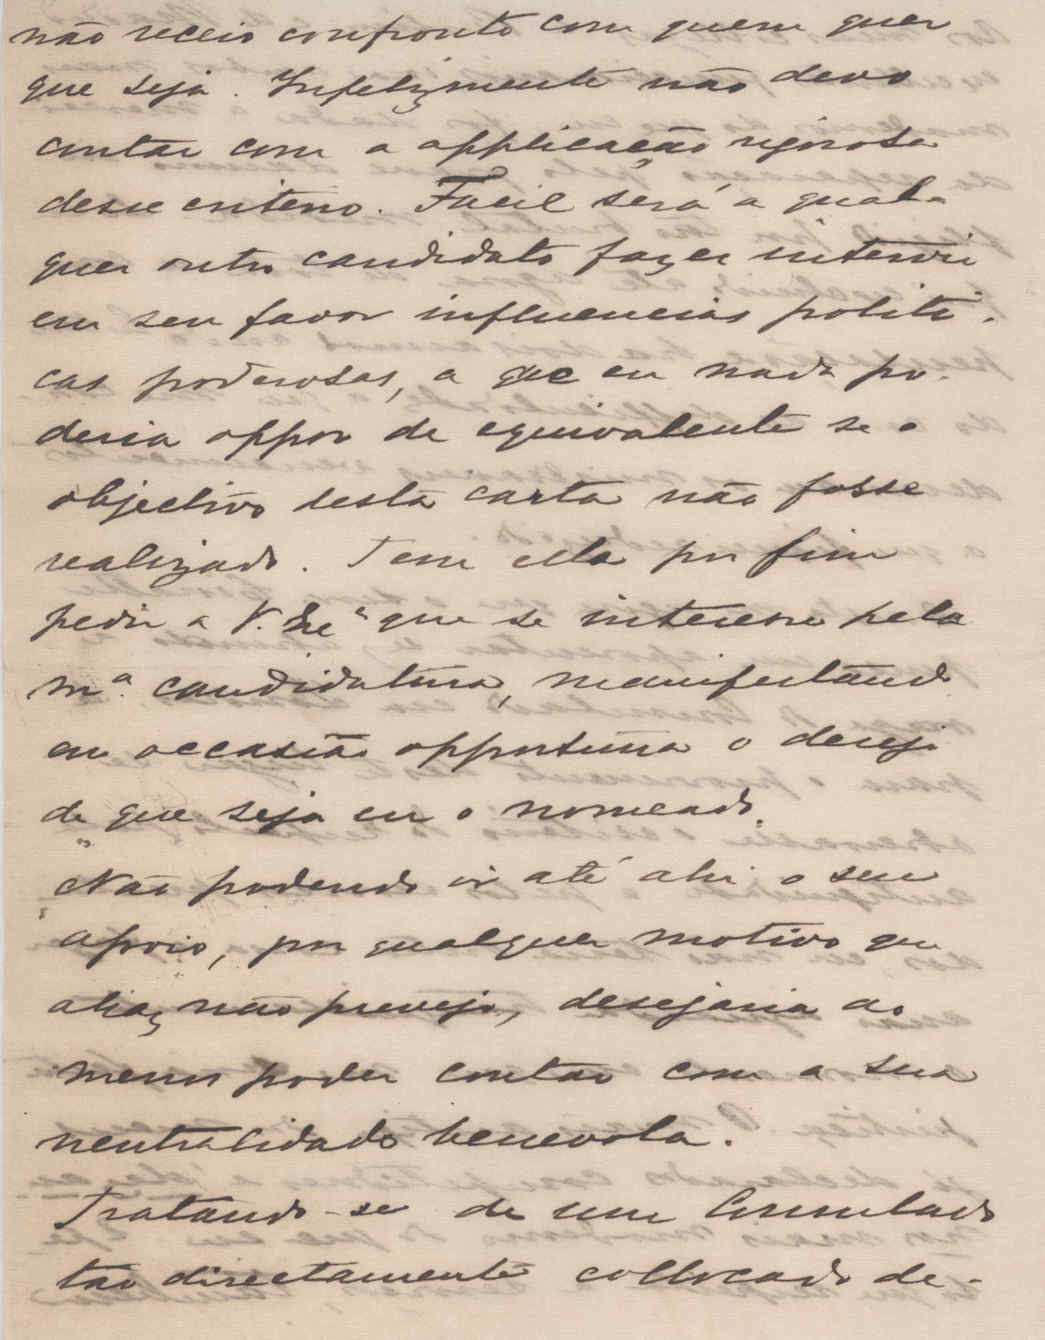 não receio confronto com quem quer
que seja. Infelizmente não devo
contar com a applicação rigorosa
desse criterio. Facil será a qual-
quer outro candidato fazer intervir
em seu favor influencias politi-
cas poderosas, a que eu nada po-
deria oppor de equivalente se o
objectivo desta carta não fosse
realizado. Tem ella por fim
pedir a V. Exª que se interesse pela
mª candidatura, manifestando
em occasião opportuna o desejo
de que seja eu o nomeado.
Não podendo ir até ahi o seu
apoio, por qualquer motivo que
aliaz não prevejo, desejaria ao
menos poder contar com a sua
neutralidade benevola.
Tratando-se de um Consulado
tão directamente collocado de-